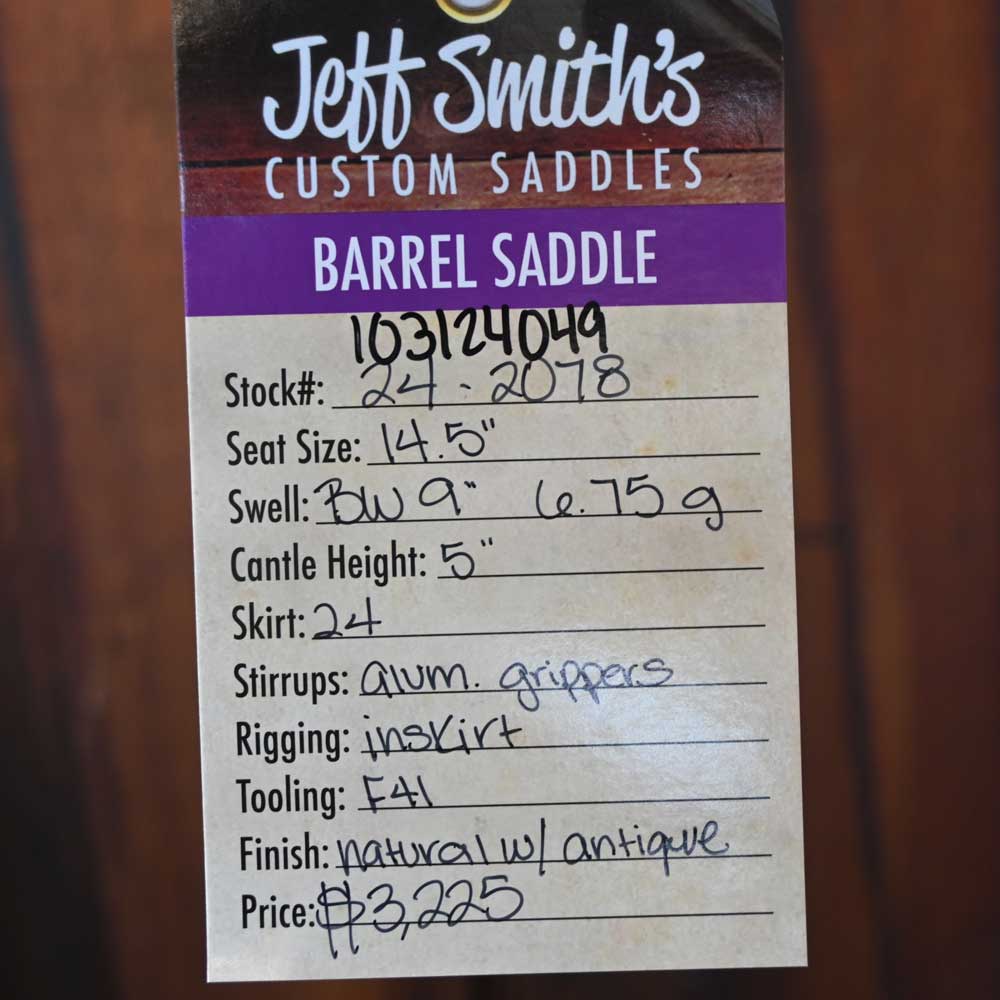 Jeff Smith's
CUSTOM SADDLES
BARREL SADDLE
103124049
Stock#: 24-2078
Seat Size: 14.5"
Swell: BW 9" 6.75 g
Cantle Height: 5"
Skirt: 24
Stirrups: alum. grippers
Rigging: inskirt
Tooling: F41
Finish: natural w/ antique
Price: $3,225